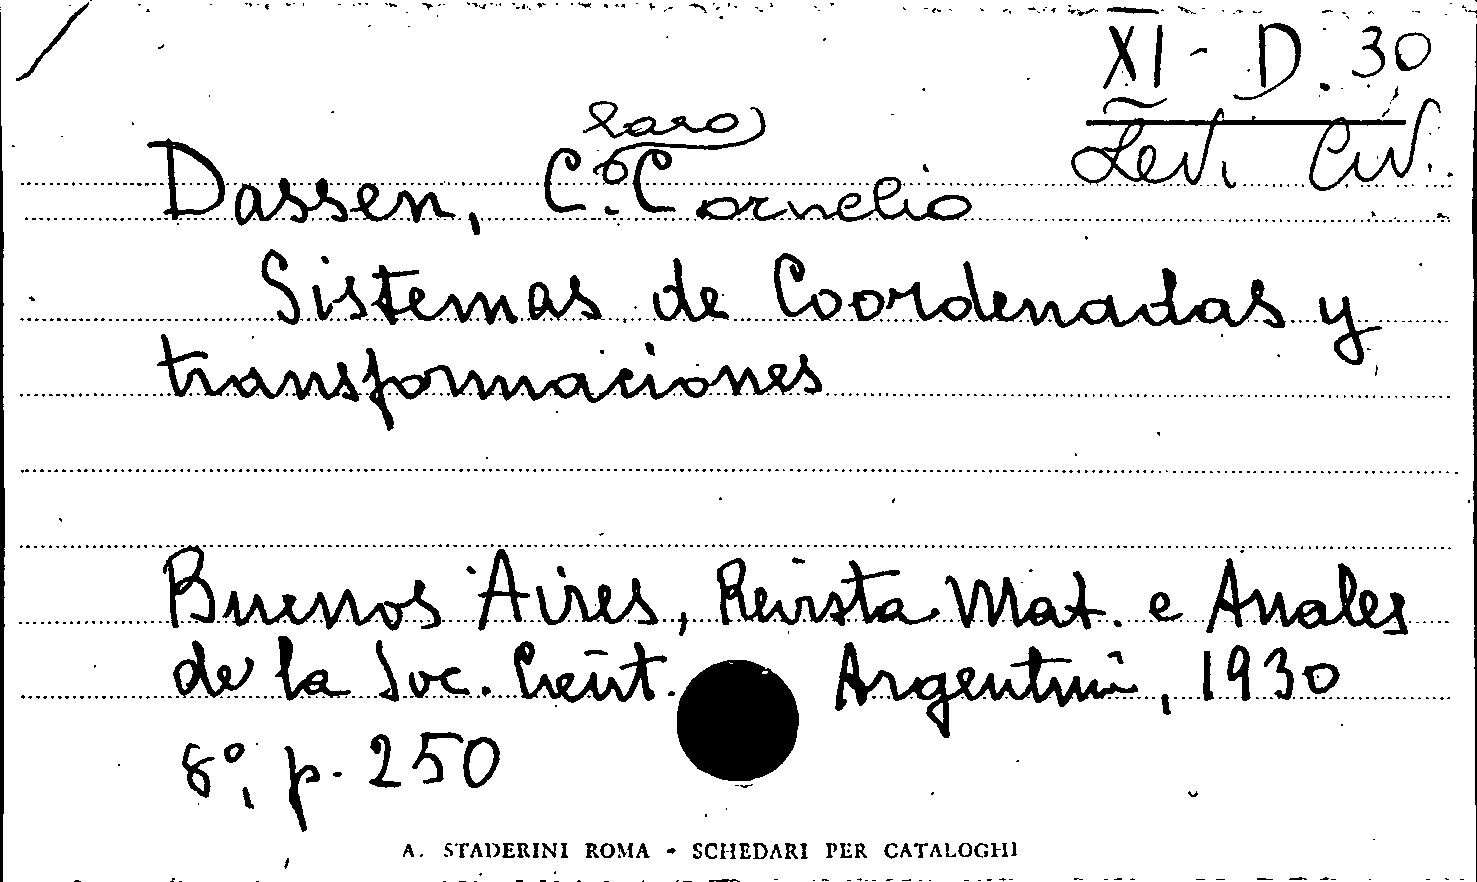 XI - D. 30
Levi Civ.
Claro
Dassen, C. Cornelio
Sistemas de Coordenadas y
transformaciones
Buenos Aires, Revista Mat. e Anales
de la Soc. Cient. Argentini, 1930
8°, p. 250
A. STADERINI ROMA - SCHEDARI PER CATALOGHI